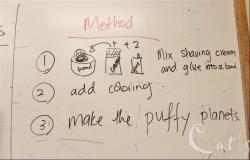 Method
+ 2
bowl
1 Mix shaving cream
and glue into a bowl
2 add coloring
3 make the puffy planets.